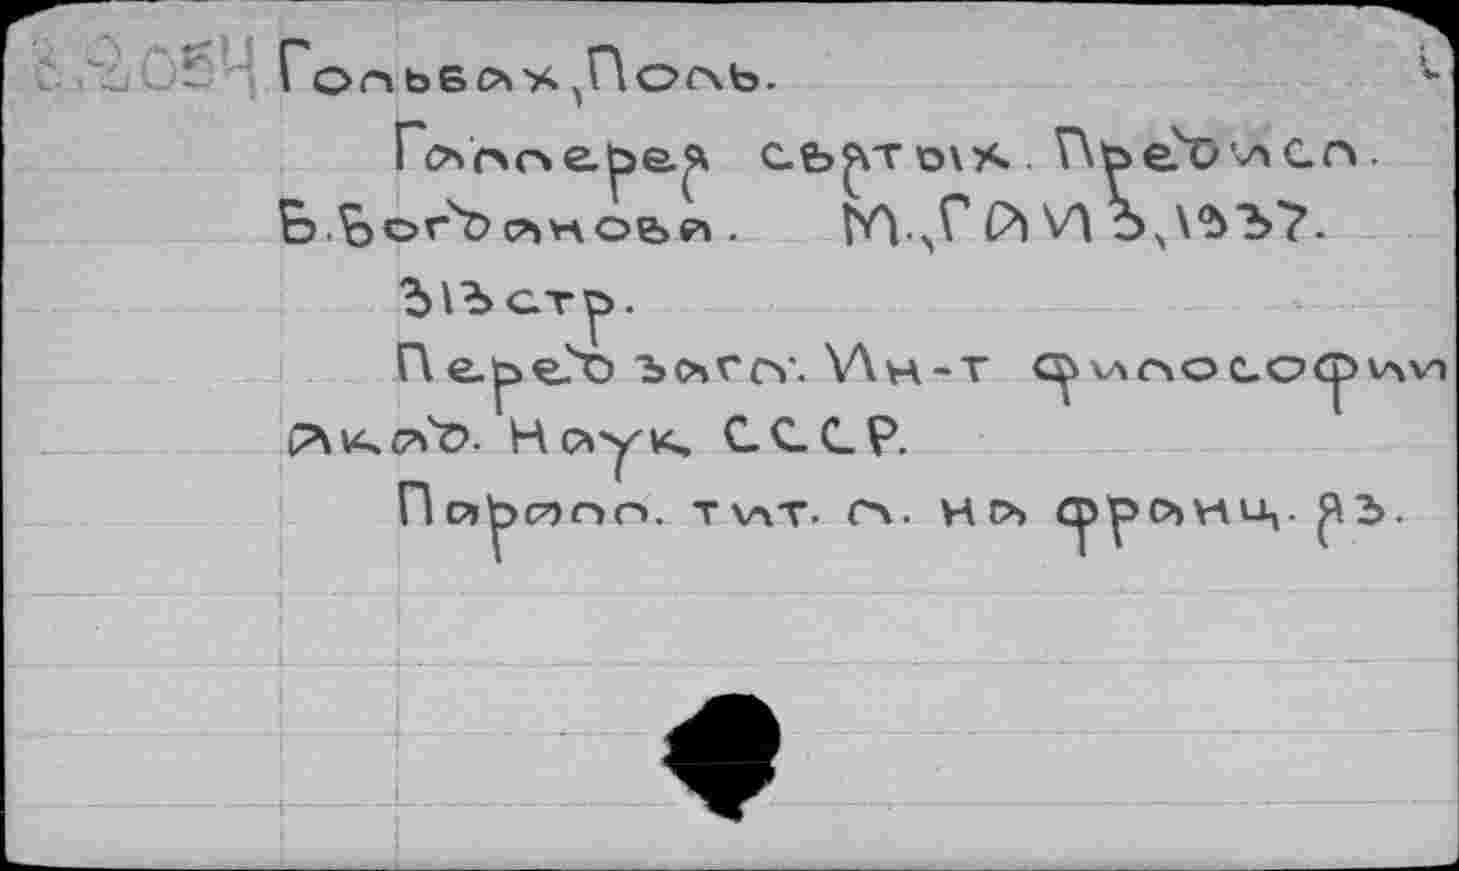 Гольбах, Поль.
Галлерея святых. Предисл.
В. Богданова. М., ГАИЗ, 1937.
313 стр.
Перед загл: Ин-т философии
Акад. Наук СССР.
Паралл. тит. л. на франц. яз.